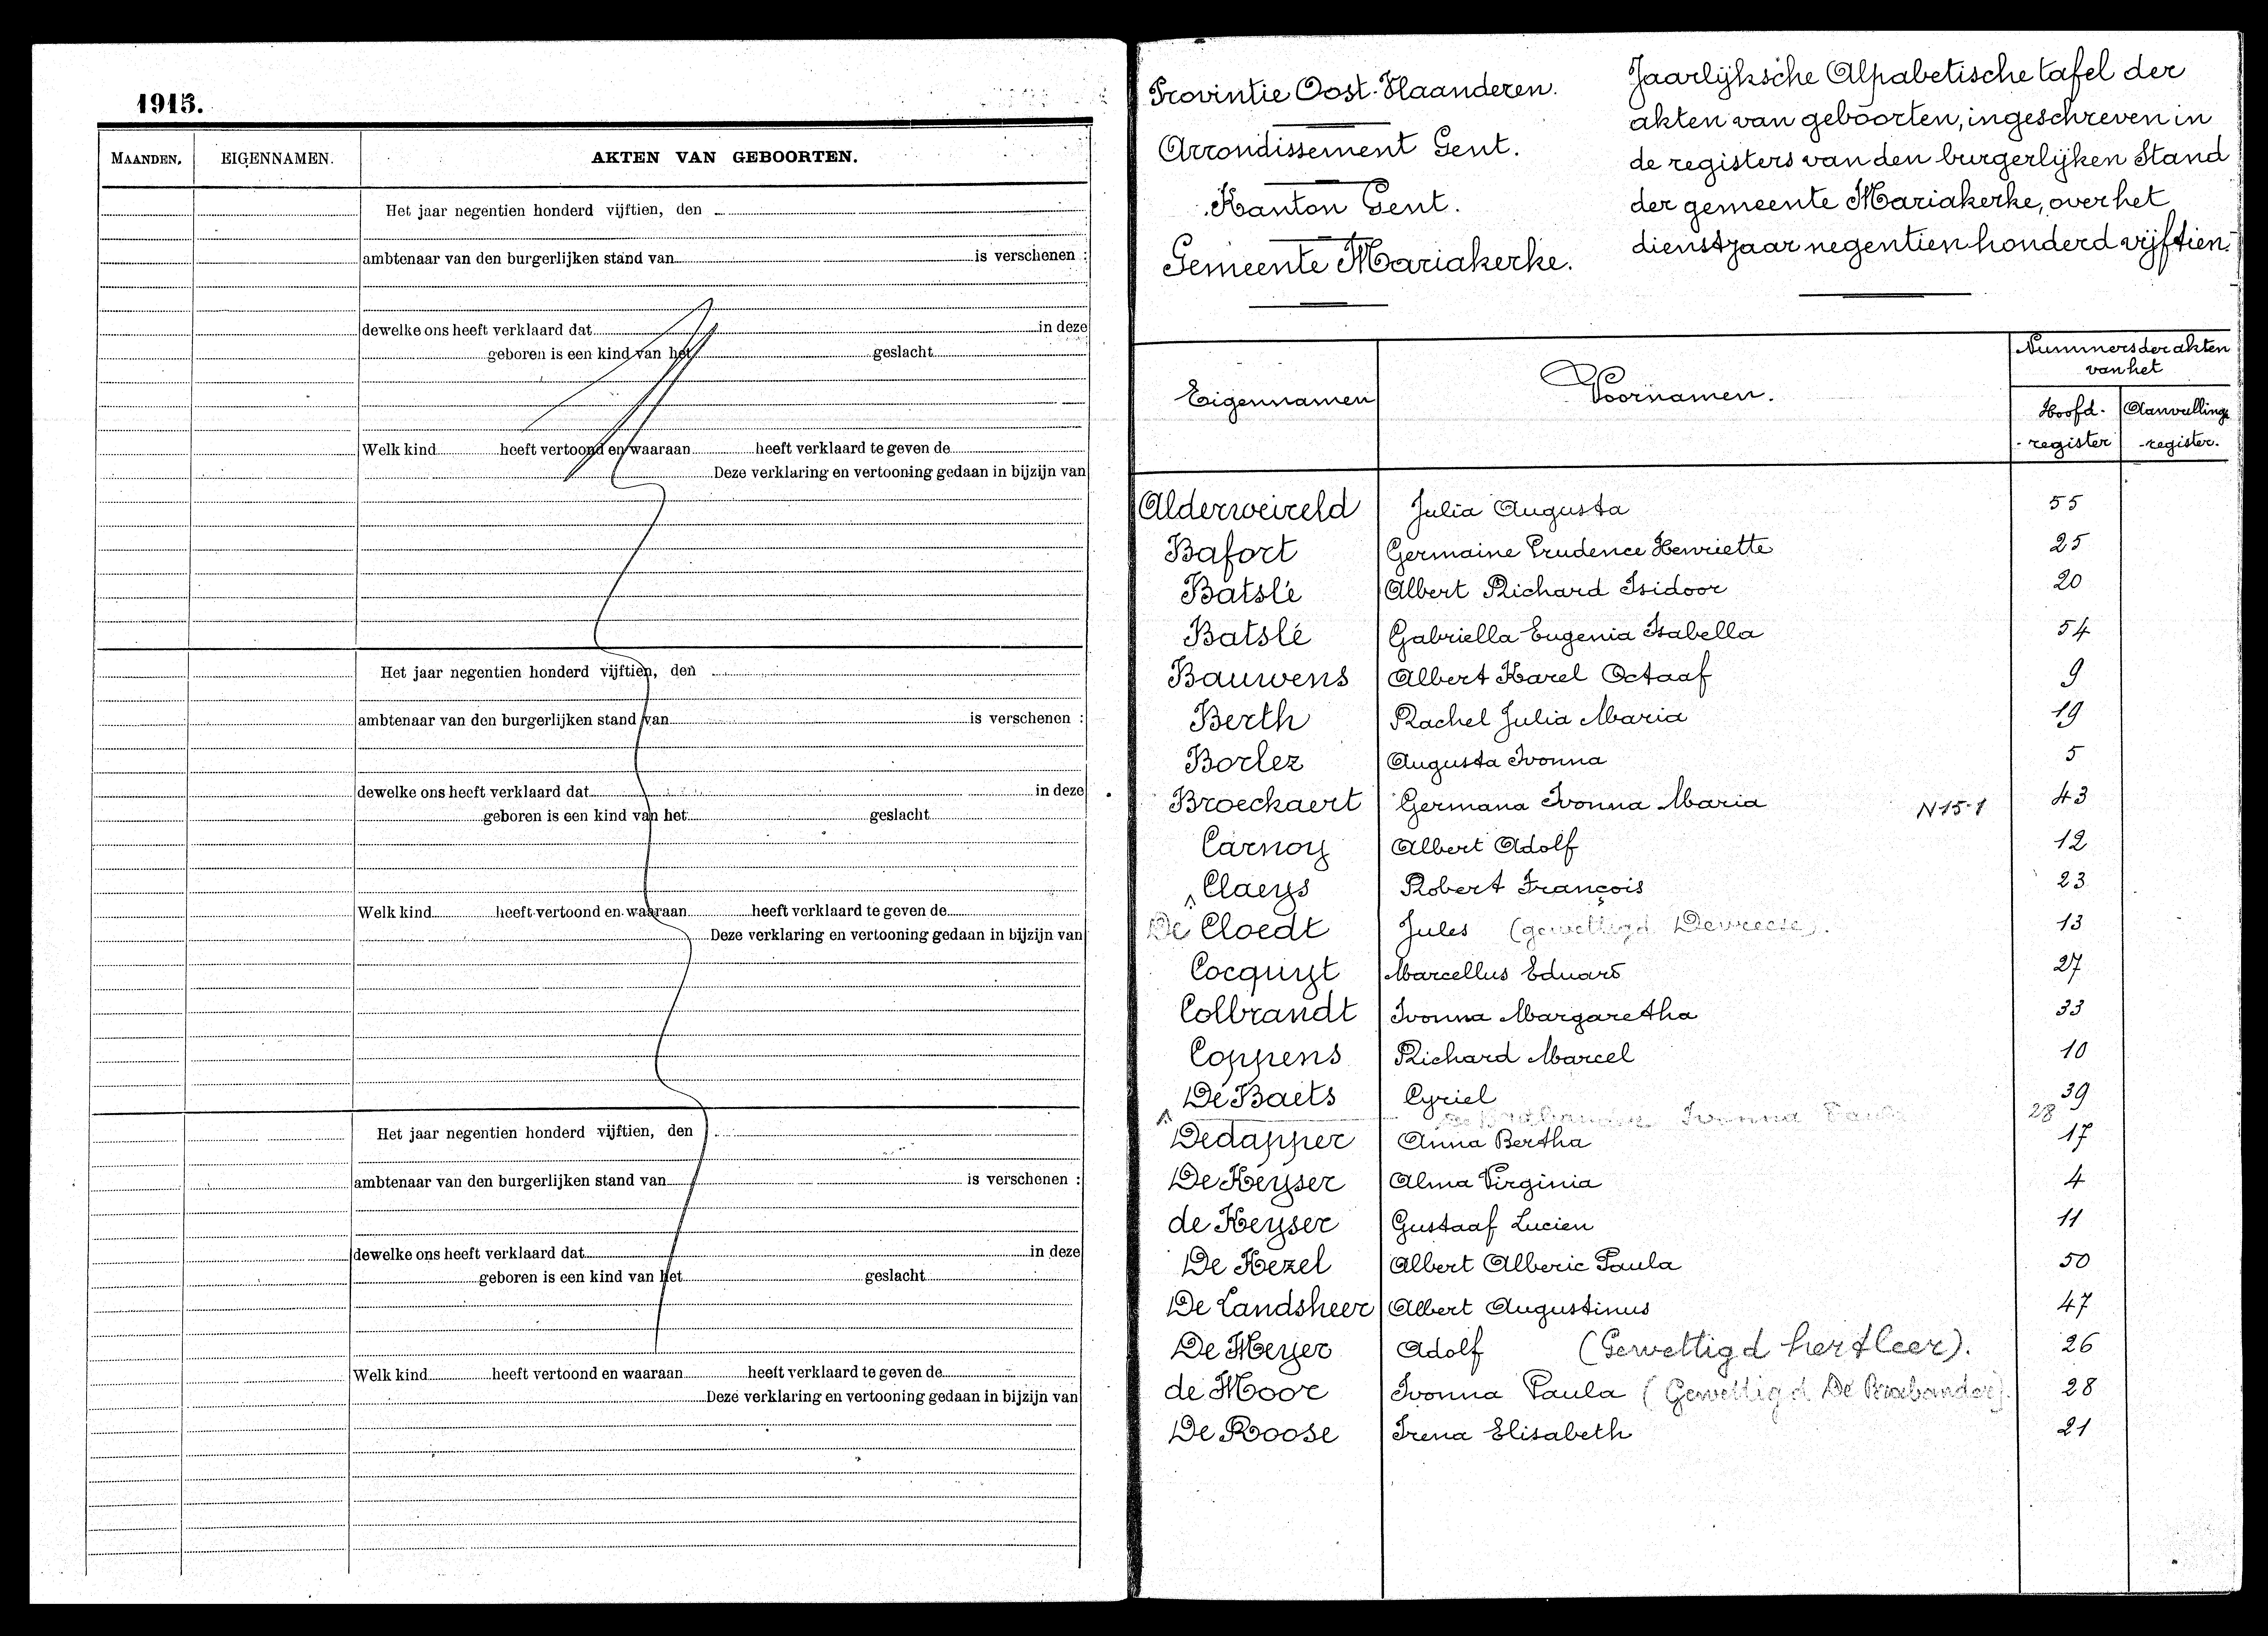 1915.
MAANDEN. EIGENNAMEN. AKTEN VAN GEBOORTEN.
Het jaar negentien honderd vijftien, den
ambtenaar van den burgerlijken stand van is verschenen :
dewelke ons heeft verklaard dat in deze
geboren is een kind van het geslacht
Welk kind heeft vertoond en waaraan heeft verklaard te geven de
Deze verklaring en vertooning gedaan in bijzijn van
Het jaar negentien honderd vijftien, den
ambtenaar van den burgerlijken stand van is verschenen :
dewelke ons heeft verklaard dat in deze
geboren is een kind van het geslacht
Welk kind heeft vertoond en waaraan heeft verklaard te geven de
Deze verklaring en vertooning gedaan in bijzijn van
Het jaar negentien honderd vijftien, den
ambtenaar van den burgerlijken stand van is verschenen :
dewelke ons heeft verklaard dat in deze
geboren is een kind van het geslacht
Welk kind heeft vertoond en waaraan heeft verklaard te geven de
Deze verklaring en vertooning gedaan in bijzijn van
Provintie Oost-Vlaanderen.
Arrondissement Gent.
Kanton Gent.
Gemeente Mariakerke.
Jaarlijksche Alpabetische tafel der
akten van geboorten, ingeschreven in
de registers van den burgerlijken Stand
der gemeente Mariakerke, over het
dienstjaar negentien honderd vijftien.
Eigennamen Voornamen. Nummers der akten
van het
Hoofd-register Aanvullings-register.
Alderweireld Julia Augusta 55
Bafort Germaine Prudence Henriette 25
Batslé Albert Richard Isidoor 20
Batslé Gabriella Eugenia Isabella 54
Bauwens Albert Karel Octaaf 9
Berth Rachel Julia Maria 19
Borlez Augusta Ivonna 5
Broeckaert Germana Ivonna Maria N15-1 43
Carnoy Albert Adolf 12
Claeys Robert François 23
De Cloedt Jules (gewettigd Devreese). 13
Cocquyt Marcellus Eduard 27
Colbrandt Ivonna Margaretha 33
Coppens Richard Marcel 10
De Baets Cyriel 39
De Brabander Ivonna Paula 28
Dedapper Anna Bertha 17
De Keyser Alma Virginia 4
de Keyser Gustaaf Lucien 11
De Kezel Albert Alberic Paula 50
De Landsheer Albert Augustinus 47
De Meyer Adolf (Gewettigd hertleer). 26
de Moor Ivonna Paula (Gewettigd De Brabander). 28
De Roose Irena Elisabeth 21